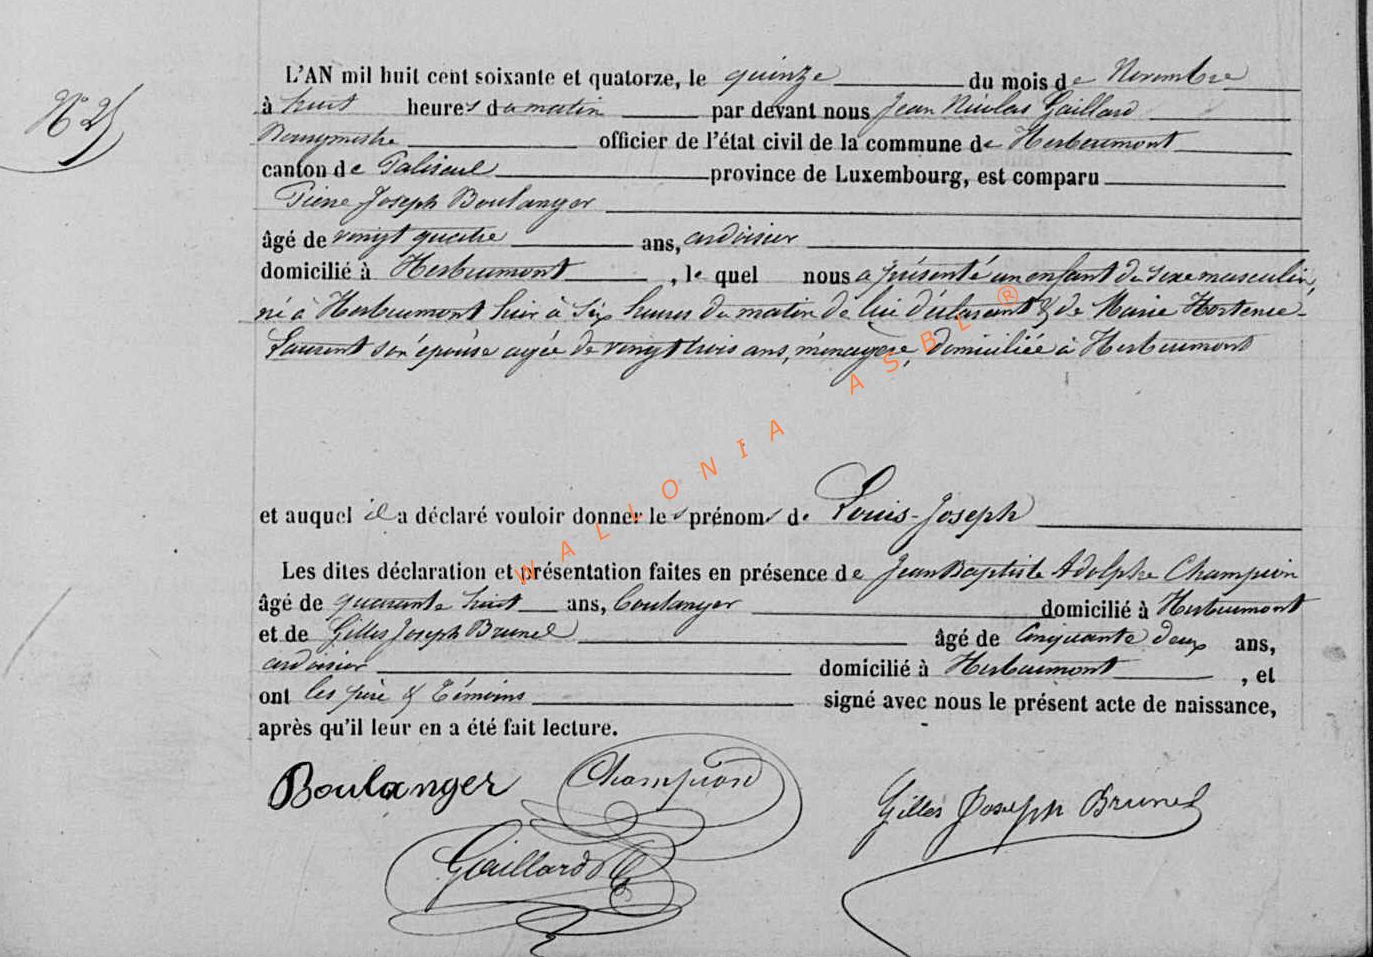 N° 25
L'AN mil huit cent soixante et quatorze, le quinze du mois de Novembre
à huit heures du matin par devant nous Jean Nicolas Gaillard
Bourgmestre officier de l'état civil de la commune de Herbeumont
canton de Paliseul province de Luxembourg, est comparu
Pierre Joseph Boulanger
âgé de vingt quatre ans, ardoisier
domicilié à Herbeumont, le quel nous a présenté un enfant du sexe masculin,
né à Herbeumont hier à six heures du matin de lui déclarant & de Marie Hortense
Laurent son épouse agée de vingt trois ans, ménagère, domiciliée à Herbeumont
et auquel il a déclaré vouloir donner les prénoms de Louis-Joseph
Les dites déclaration et présentation faites en présence de Jean Baptiste Adolphe Champion
âgé de quarante huit ans, boulanger domicilié à Herbeumont
et de Gilles Joseph Brunel âgé de Cinquante deux ans,
ardoisier domicilié à Herbeumont, et
ont les père & témoins signé avec nous le présent acte de naissance,
après qu'il leur en a été fait lecture.
Boulanger Champion Gilles Joseph Brunel
Gaillard
WALLONIA ASBL ®